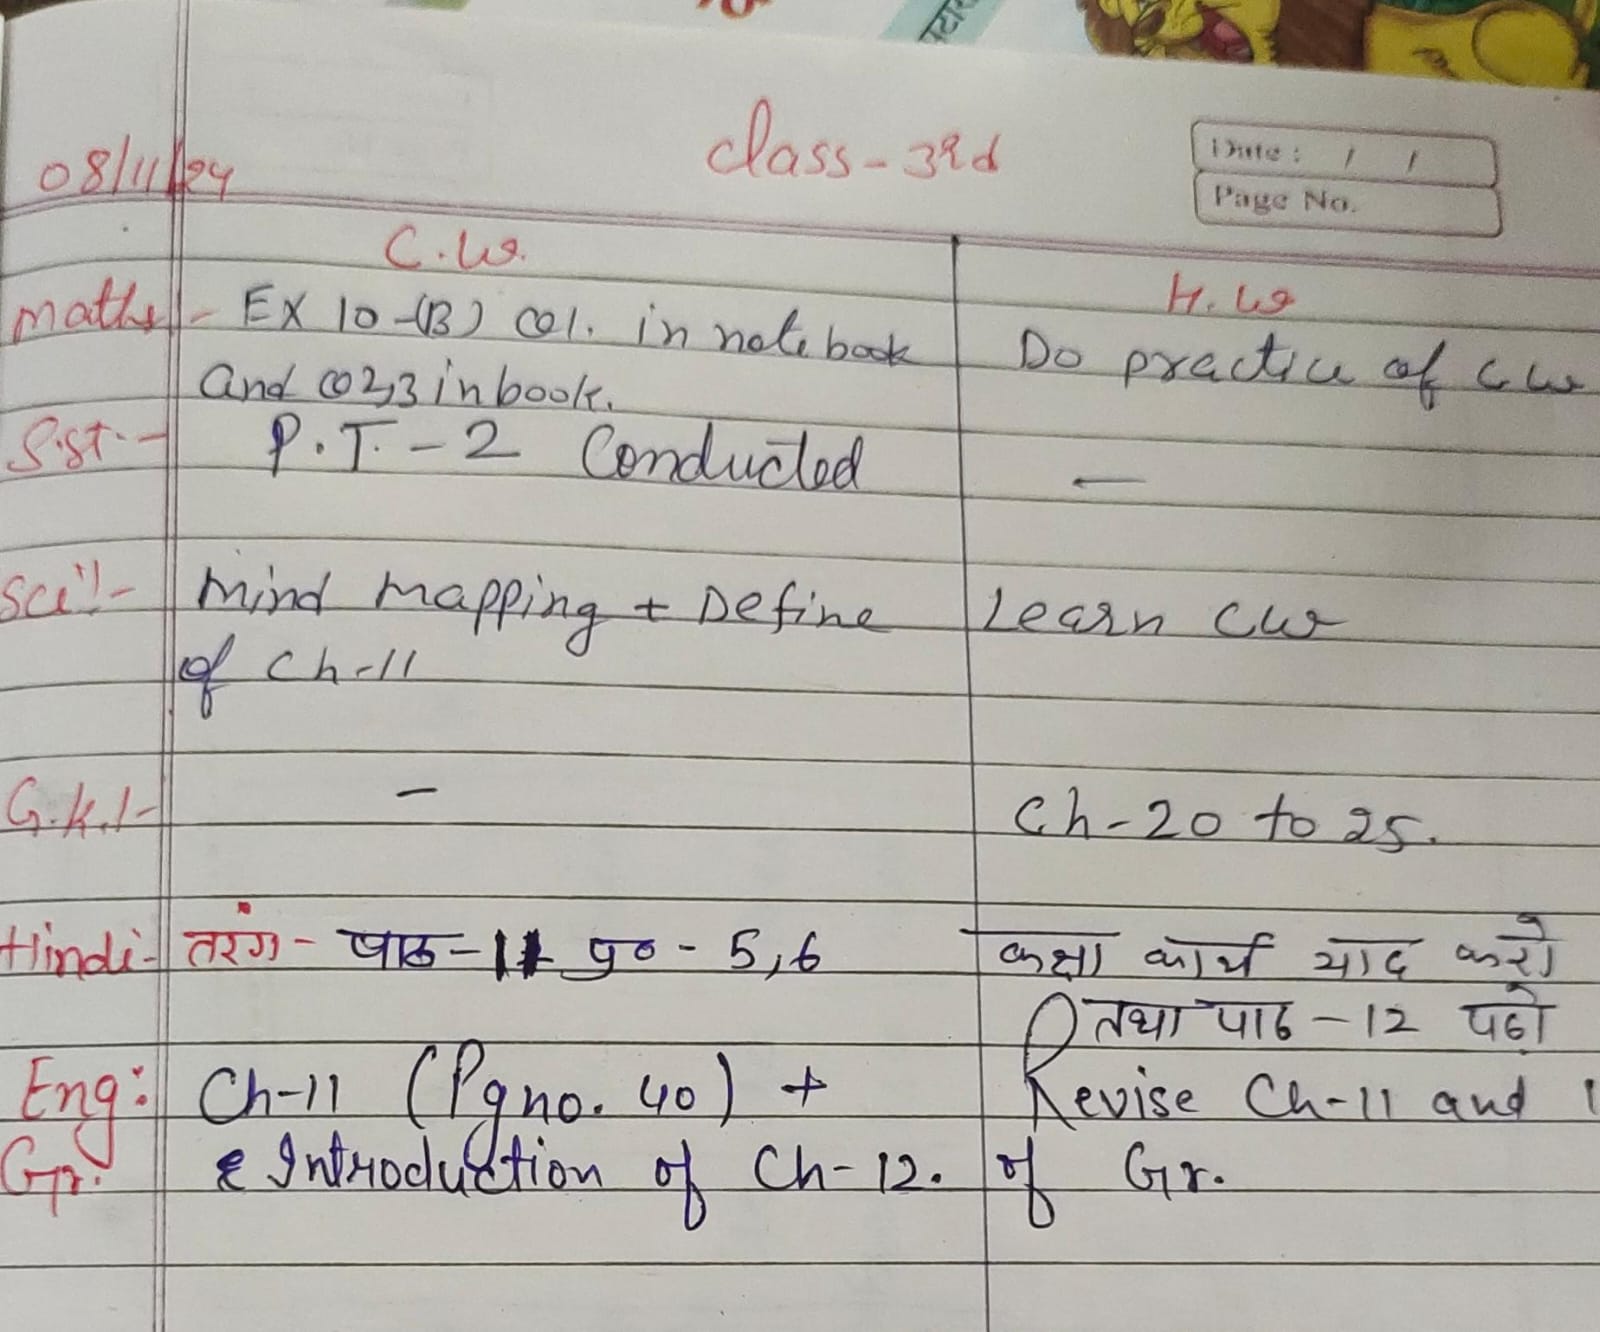 class-3rd
Date : / /
Page No.
08/11/24
C.W.
H.W
Maths - EX 10-(B) Q1. in note book
Do practice of C.W
and Q2,3 in book.
S.st. - P.T.-2 Conducted
-
Sci!- Mind Mapping + Define
Learn CW
of Ch-11
G.K.!- -
Ch-20 to 25.
Hindi- तरंग- पाठ-11 पृ०-5,6
कक्षा कार्य याद करो
तथा पाठ-12 पढो
Eng: Ch-11 (Pg no. 40) +
Revise Ch-11 and 1
Gr. & Introduction of Ch-12.
of Gr.